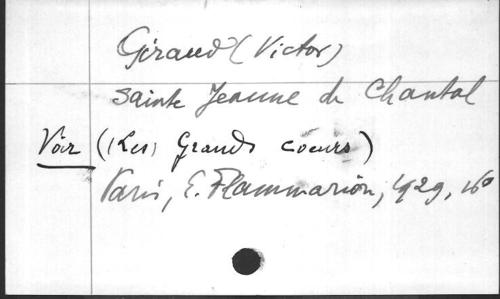 Giraud (Victor)
Sainte Jeanne de Chantal
Voir (Les Grands coeurs)
Paris, E. Flammarion, 1929, 16°